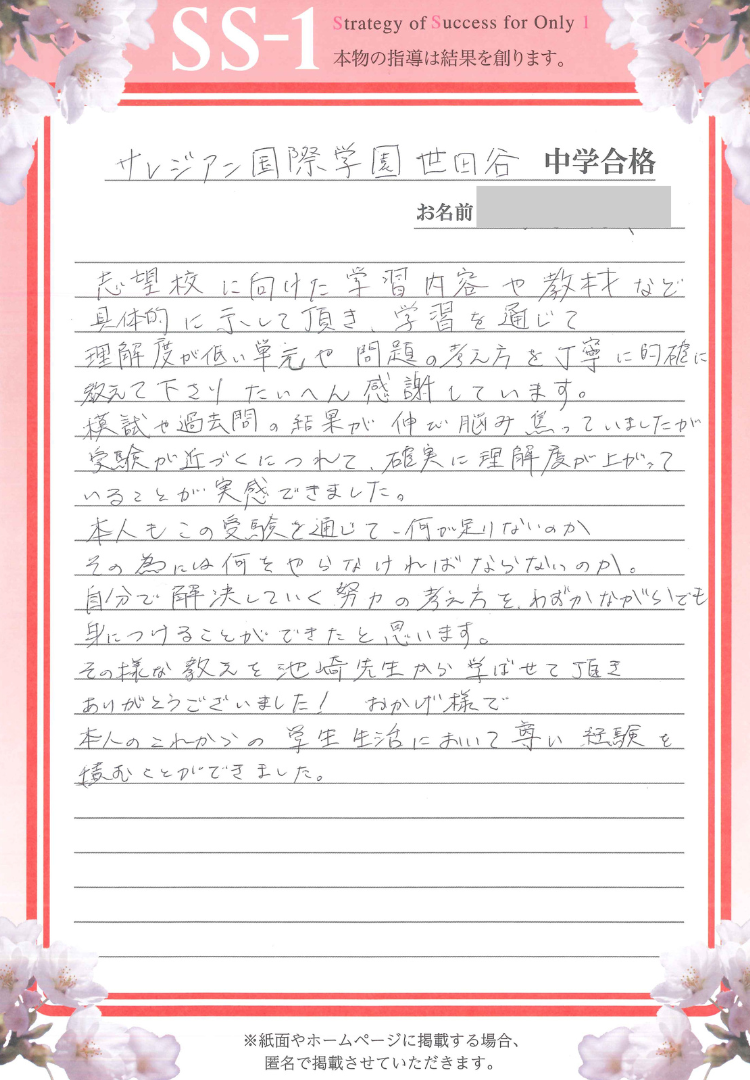 SS-1
Strategy of Success for Only 1
本物の指導は結果を創ります。
サレジアン国際学園世田谷 中学合格
お名前
志望校に向けた学習内容や教材など
具体的に示して頂き、学習を通じて
理解度が低い単元や問題の考え方を丁寧に的確に
教えて下さりたいへん感謝しています。
模試や過去問の結果が伸び脳み焦っていましたが
受験が近づくにつれて、確実に理解度が上がって
いることが実感できました。
本人もこの受験を通じて、何が足りないのか
その為には何をやらなければならないのか。
自分で解決していく努力の考え方を、わずかながらでも
身につけることができたと思います。
その様な教えを池崎先生から学ばせて頂き
ありがとうございました! おかげ様で
本人のこれからの学生生活において尊い経験を
積むことができました。
※紙面やホームページに掲載する場合、
匿名で掲載させていただきます。